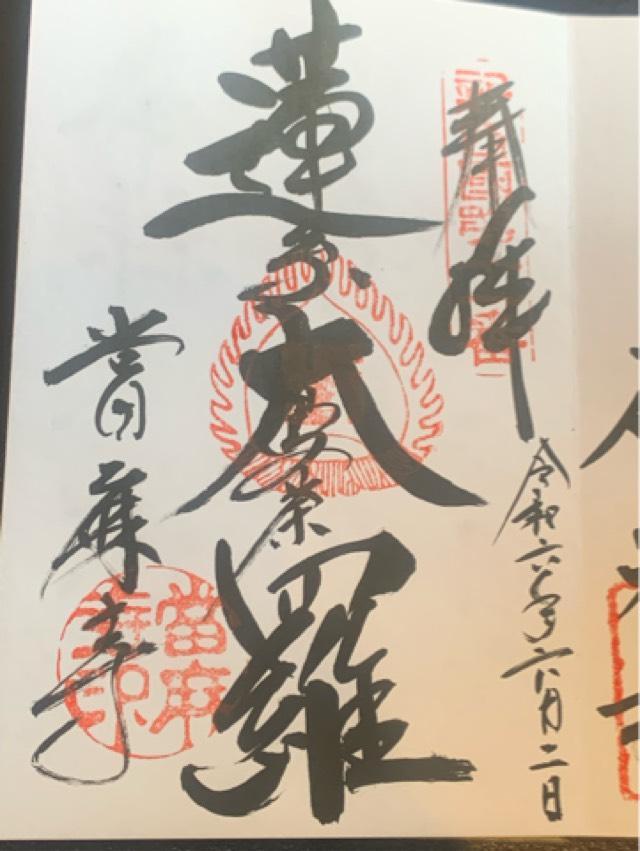 奉拝
令和六年六月二日
蓮糸大曼荼羅
當麻寺
當麻
寺印